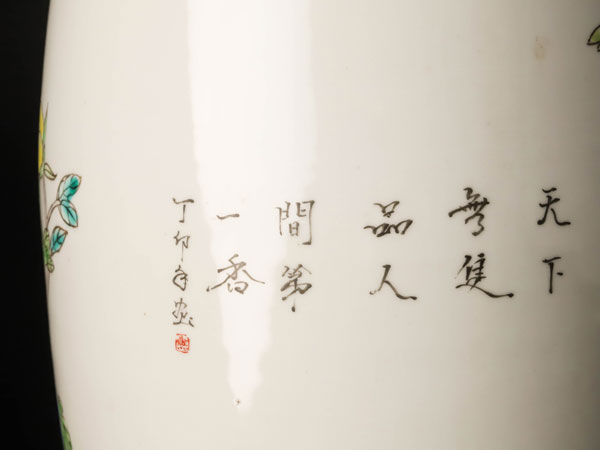 天下
無隻
品人
間第
一香
丁卯年画